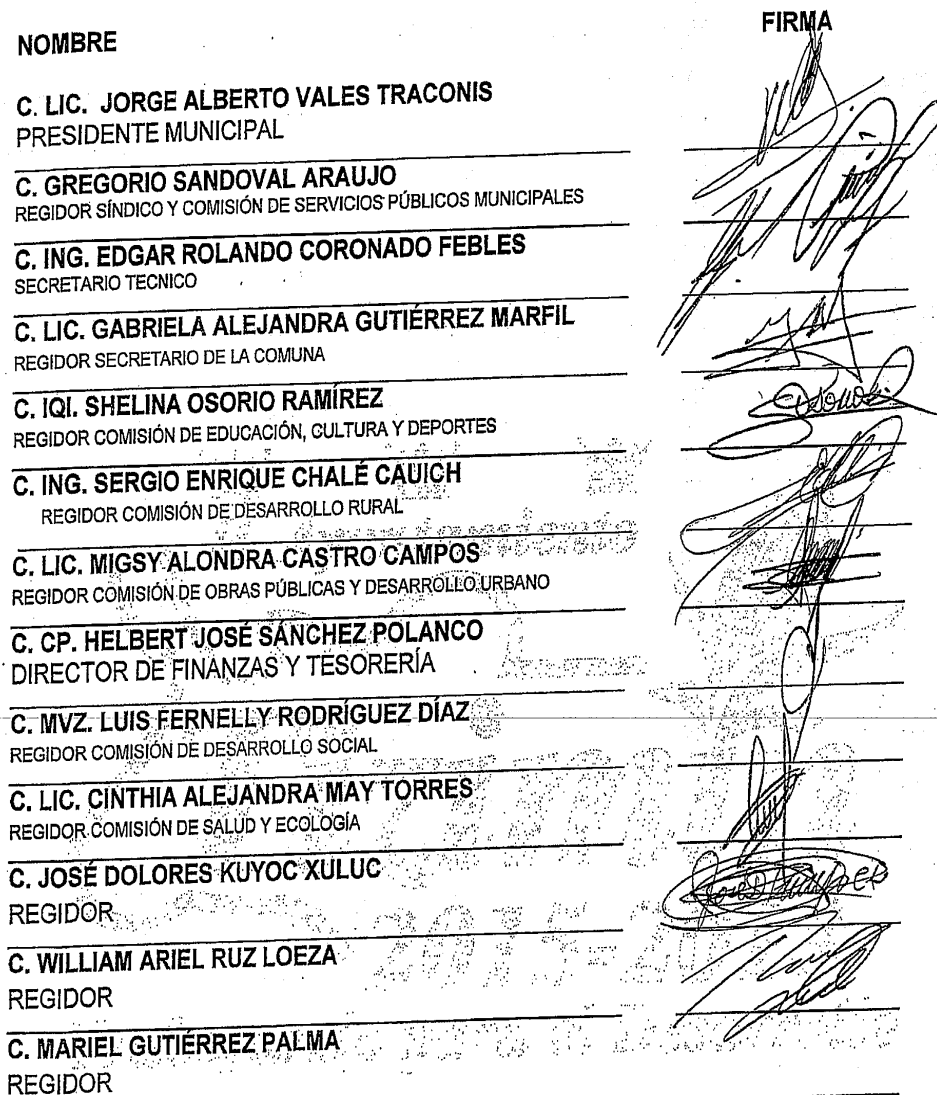 NOMBRE
FIRMA
C. LIC. JORGE ALBERTO VALES TRACONIS
PRESIDENTE MUNICIPAL
C. GREGORIO SANDOVAL ARAUJO
REGIDOR SÍNDICO Y COMISIÓN DE SERVICIOS PÚBLICOS MUNICIPALES
C. ING. EDGAR ROLANDO CORONADO FEBLES
SECRETARIO TECNICO
C. LIC. GABRIELA ALEJANDRA GUTIÉRREZ MARFIL
REGIDOR SECRETARIO DE LA COMUNA
C. IQI. SHELINA OSORIO RAMÍREZ
REGIDOR COMISIÓN DE EDUCACIÓN, CULTURA Y DEPORTES
C. ING. SERGIO ENRIQUE CHALÉ CAUICH
REGIDOR COMISIÓN DE DESARROLLO RURAL
C. LIC. MIGSY ALONDRA CASTRO CAMPOS
REGIDOR COMISIÓN DE OBRAS PÚBLICAS Y DESARROLLO URBANO
C. CP. HELBERT JOSÉ SÁNCHEZ POLANCO
DIRECTOR DE FINANZAS Y TESORERÍA
C. MVZ. LUIS FERNELLY RODRÍGUEZ DÍAZ
REGIDOR COMISIÓN DE DESARROLLO SOCIAL
C. LIC. CINTHIA ALEJANDRA MAY TORRES
REGIDOR COMISIÓN DE SALUD Y ECOLOGÍA
C. JOSÉ DOLORES KUYOC XULUC
REGIDOR
C. WILLIAM ARIEL RUZ LOEZA
REGIDOR
C. MARIEL GUTIÉRREZ PALMA
REGIDOR